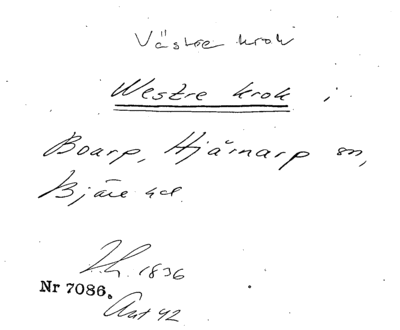 Västre krok
Westre krok i
Boarp, Hjärnarp sn,
Bjäre hd.
1836
Nr 7086.
Akt 42